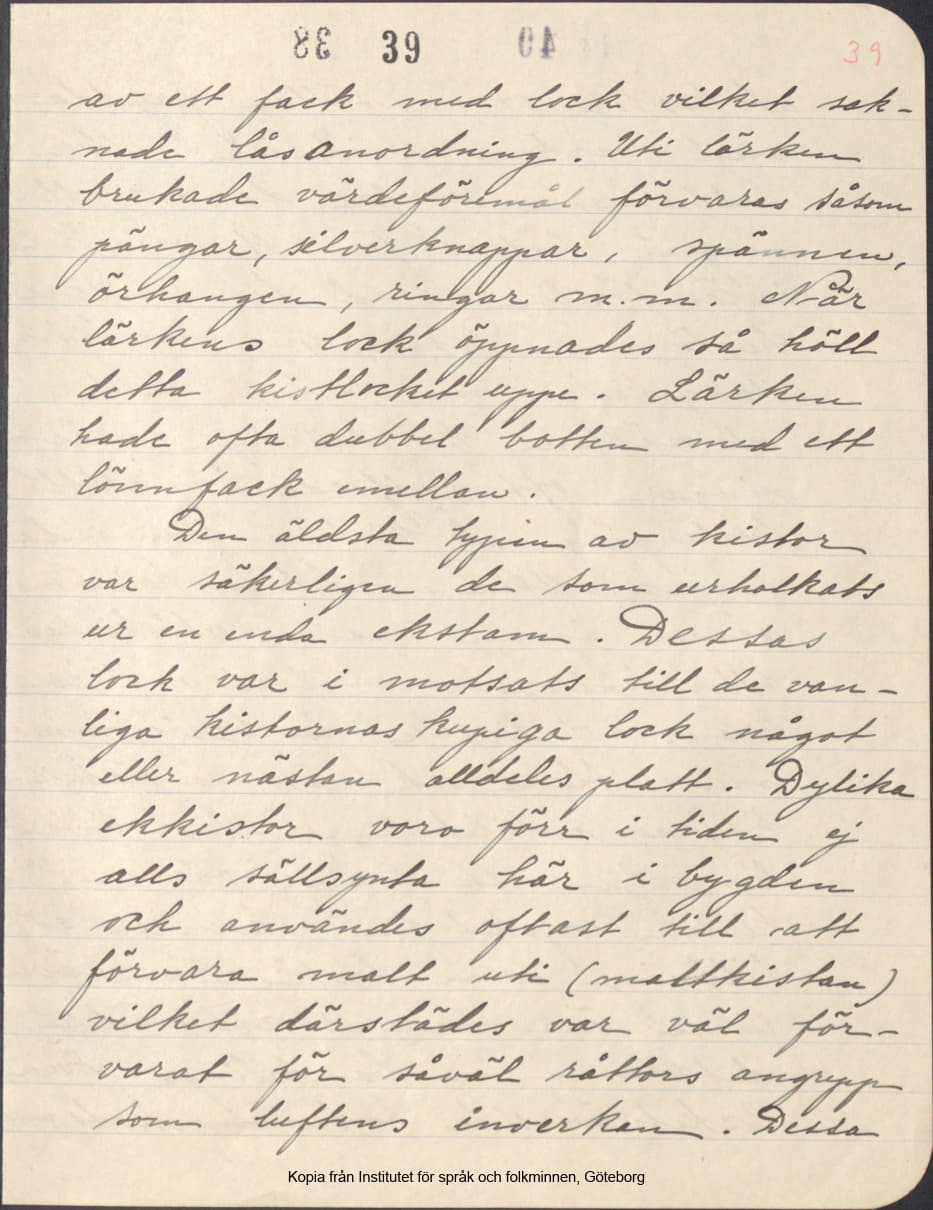 38 39 40 39
av ett fack med lock vilket sak-
nade låsanordning. Uti lärken
brukade värdeföremål förvaras såsom
pängar, silverknappar, spännen,
örhangen, ringar m.m. När
lärkens lock öppnades så höll
detta kistlocket uppe. Lärken
hade ofta dubbel botten med ett
lönnfack emellan.
Den äldsta typen av kistor
var säkerligen de som urholkats
ur en enda ekstam. Dessas
lock var i motsats till de van-
liga kistornas kupiga lock något
eller nästan alldeles platt. Dylika
ekkistor voro förr i tiden ej
alls sällsynta här i bygden
och användes oftast till att
förvara malt uti (maltkistan)
vilket därstädes var väl för-
varat för såväl råttors angrepp
som luftens inverkan. Dessa
Kopia från Institutet för språk och folkminnen, Göteborg